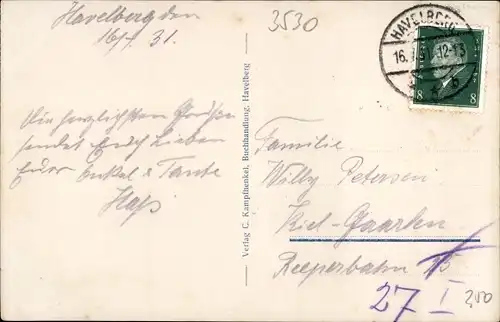 Havelberg den
16/7. 31.
3530
HAVELBERG
16.7.31. 12-13
8 8
Die herzlichsten Grüße
sendet Euch Lieben
Euer Onkel & Tante
Verlag C. Kampfhenkel, Buchhandlung, Havelberg
Familie
Willy Petersen
Kiel-Gaarden
Reeperbahn
27 I